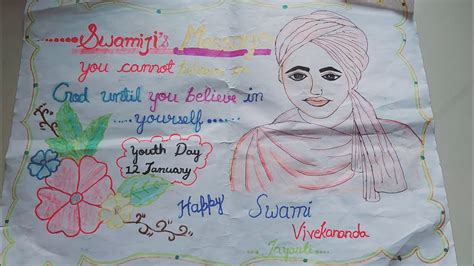 Swamiji's Message
you cannot believe in
God until you believe in
.....yourself......
Youth Day
12 January
Happy
Swami
Vivekananda
.... Jayanti....